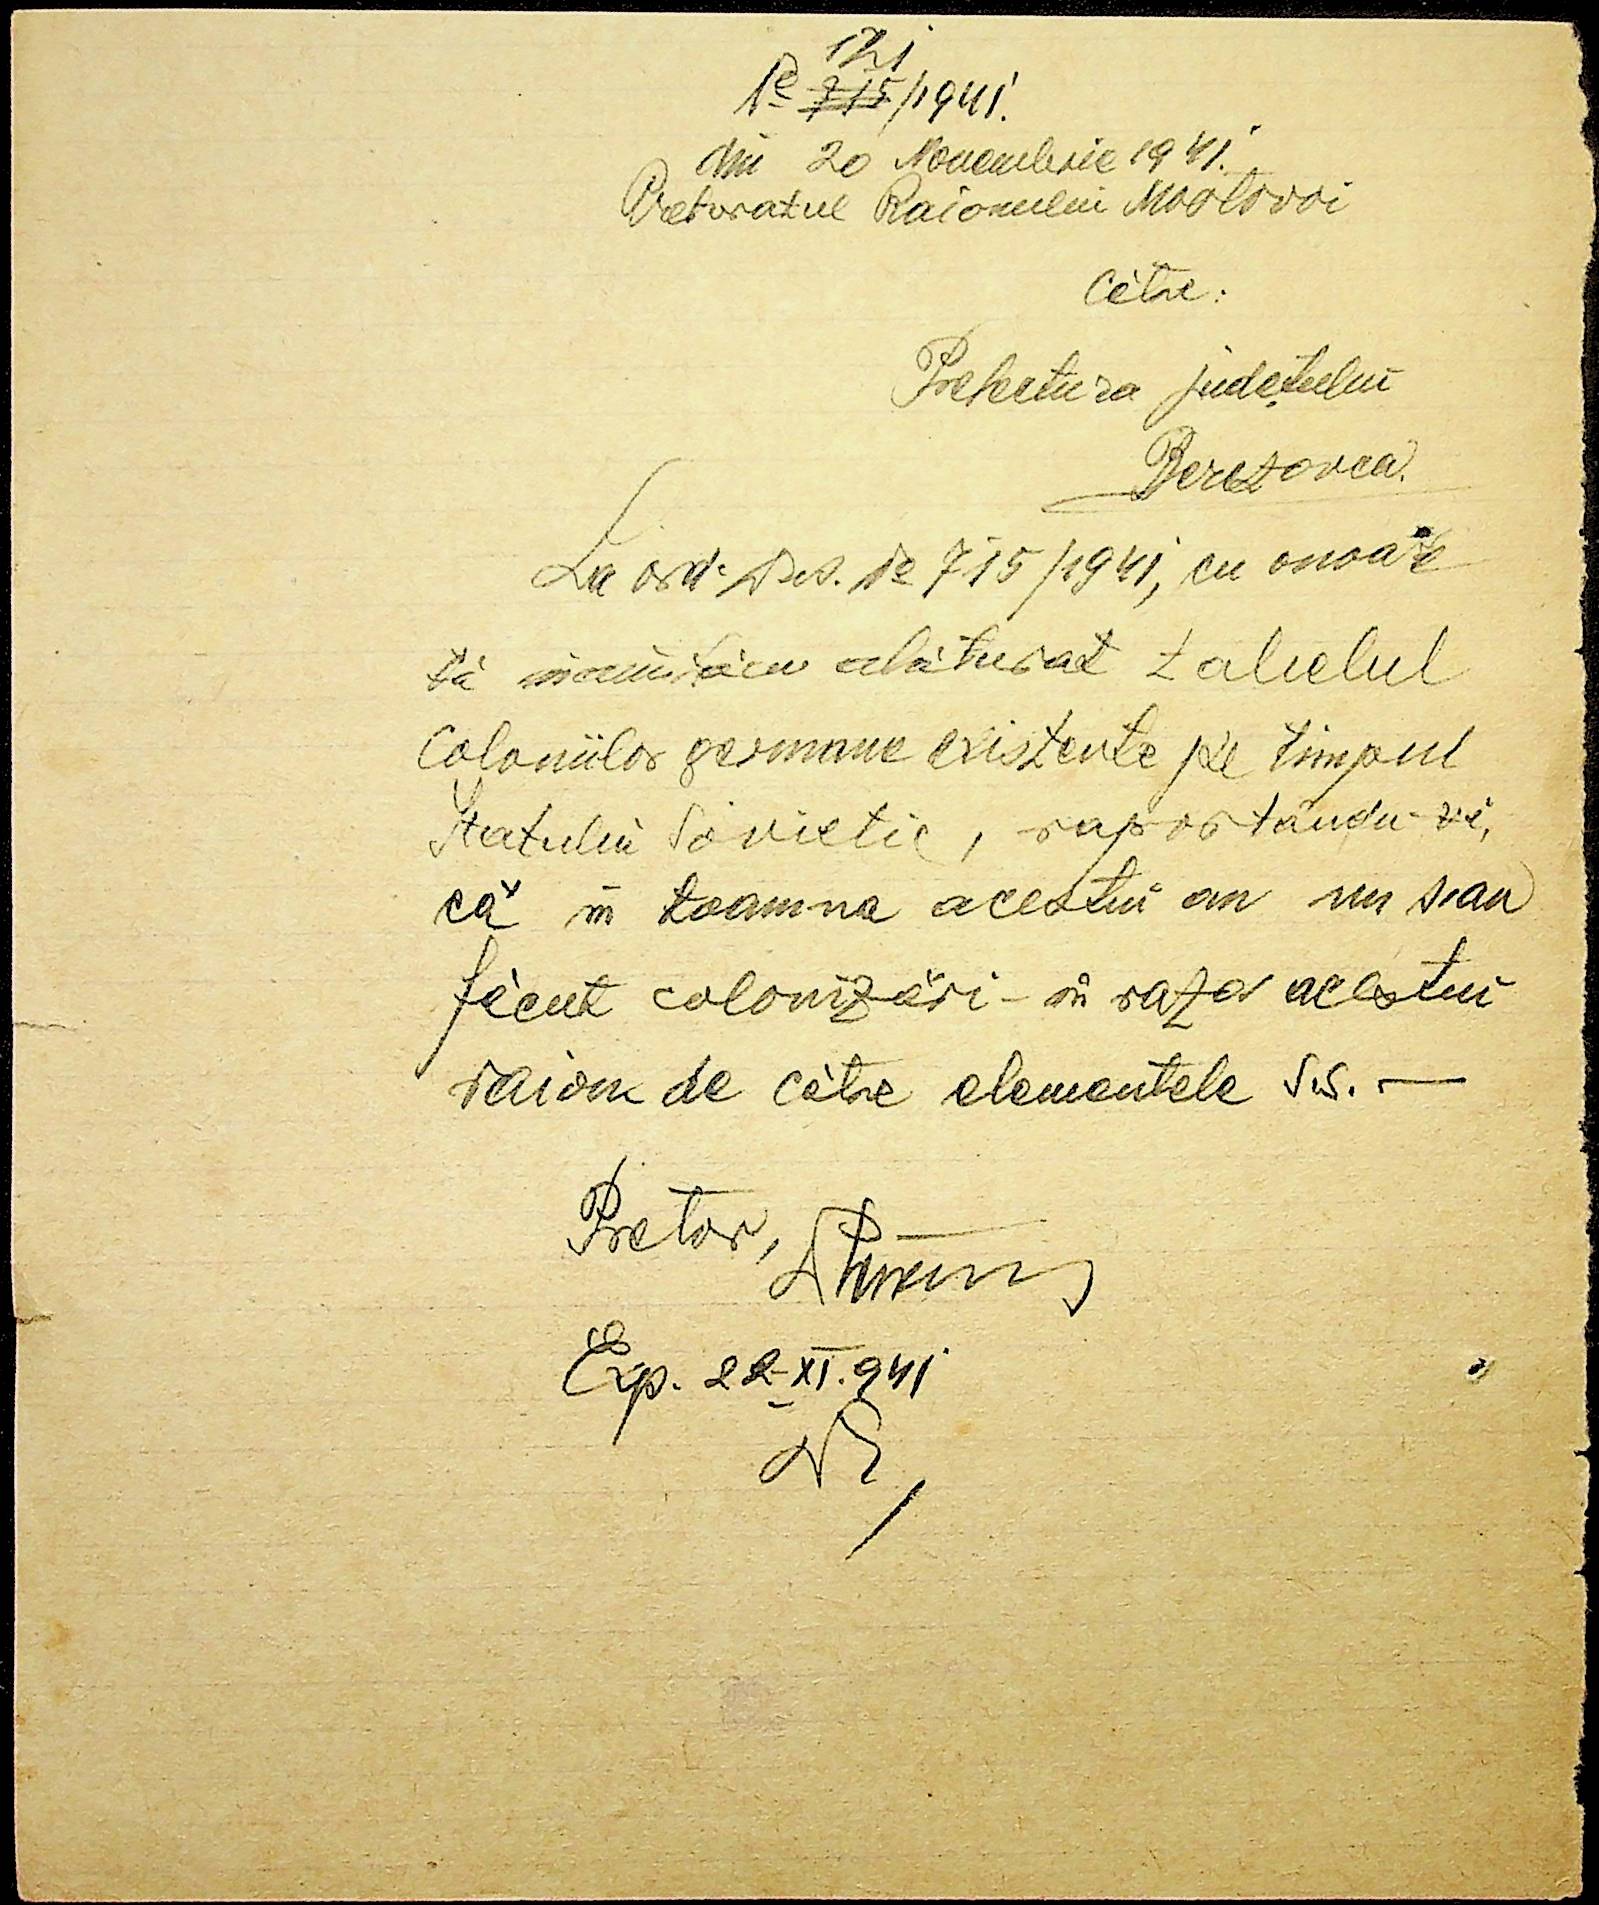 121
№ 715/1941.
din 20 Noiembrie 1941.
Pretoratul Raionului Mostovoi
Către:
Prefectura județului
Berezovca.
La ord. Dvs. № 715/1941, cu onoare
vă înaintăm alăturat tabelul
Coloniilor germane existente pe timpul
Statului Sovietic, raportându-vă,
că în toamna acestui an nu s'au
făcut colonizări în raza acestui
raion de către elementele S.S. —
Pretor,
Exp. 22-XI.941